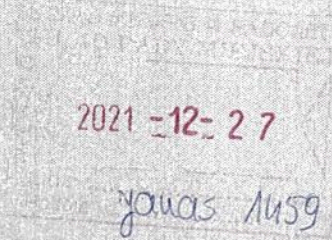 2021 -12- 27
yanas 1459